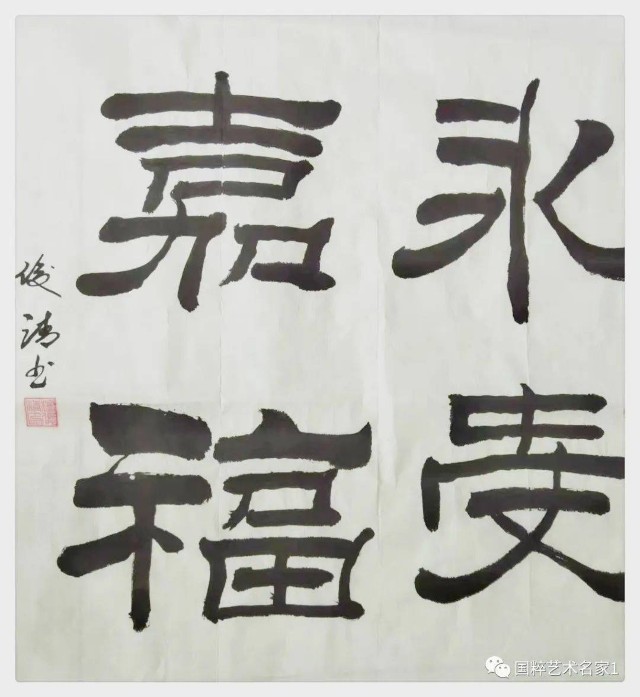 永受
嘉福
俊书
国粹艺术名家1